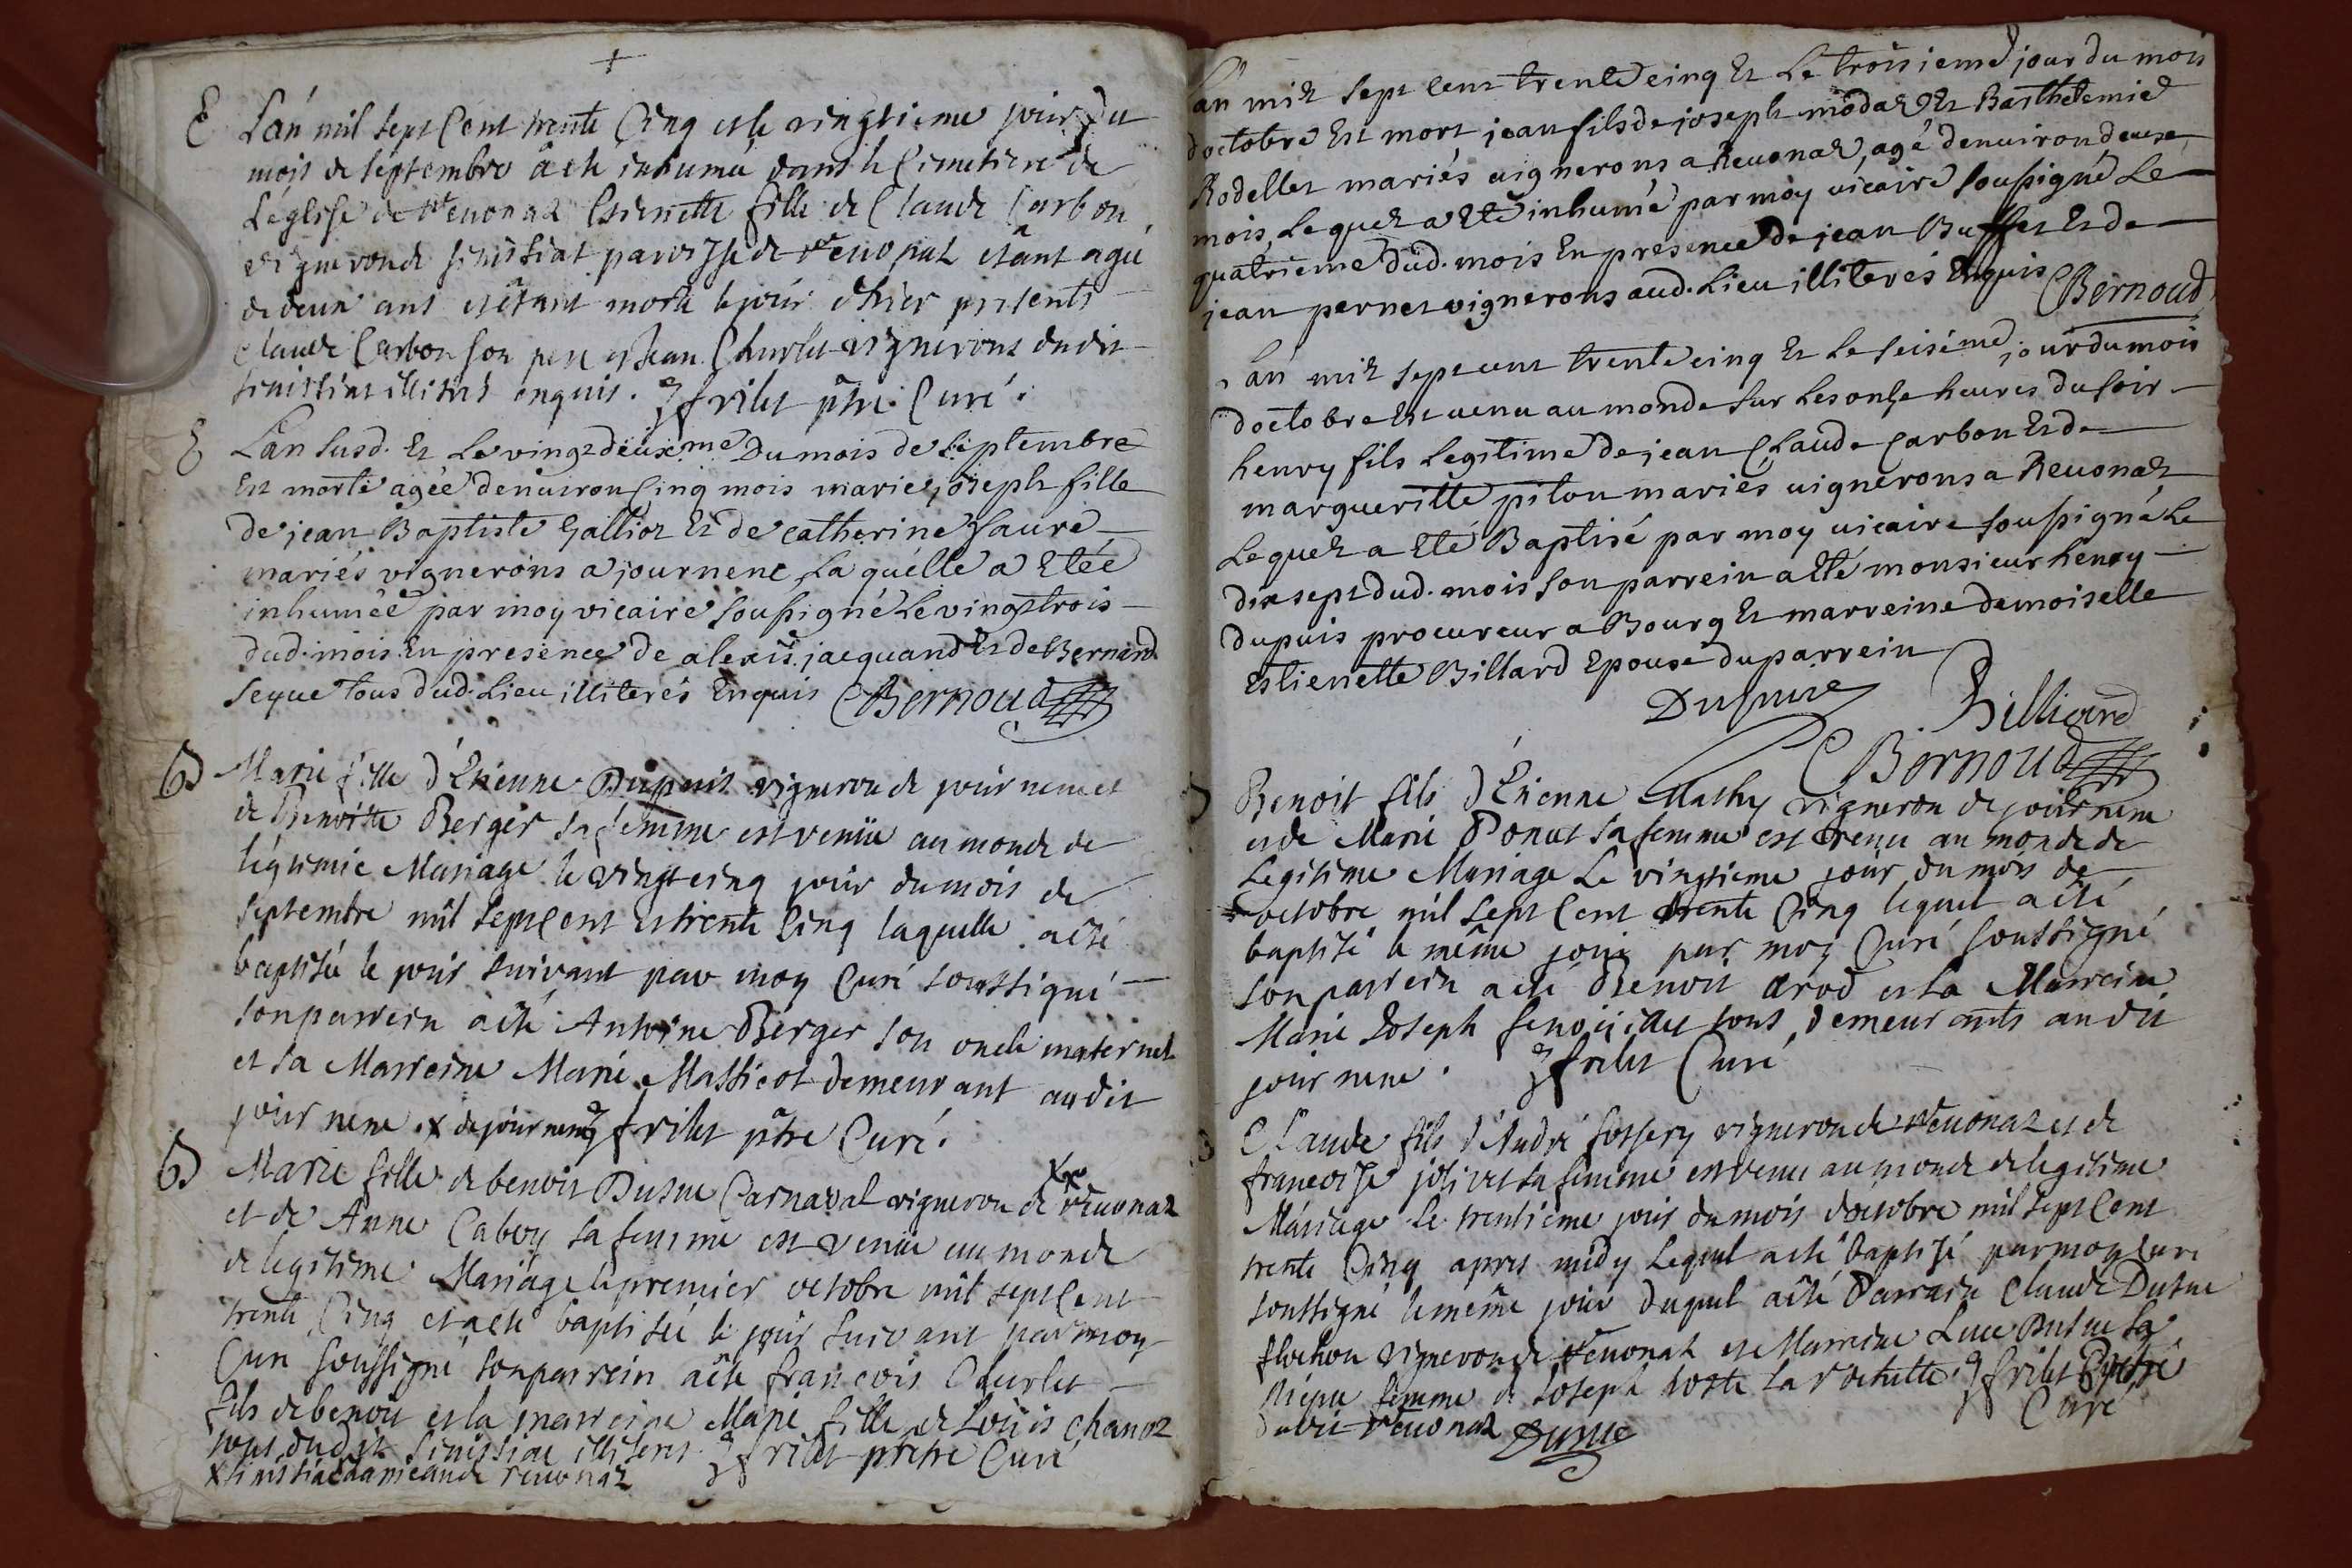 +
E L'an mil sept Cent trente Cinq et le vingtieme jour du
mois de septembre a eté inhumée dans le Cimetiere de
L'église de Revonaz Estiennette fille de Claude Carbon
vigneron de sinissiat paroisse de Revonaz etant agée
de deux ans et étant morte le jour d'hier presents
Claude Carbon son pere et Jean Churlet vignerons dudit
sinissiat illiterés enquis. frilet ptre Curé.
E L'an susd. Et Le vingt deüxieme Du mois de septembre
Est morte agée denuiron Cinq mois marie joseph fille
de jean Baptiste Gallioz Et de catherine faure
mariés vignerons a journene La quelle a Etée
inhumée par moy vicaire soussigné Le vingt trois
dud. mois En presence de alexis jacquand Et de Bernard
seque tous dud. Lieu illiterés Enquis Bernoud
B Marie fille d'Etienne Dupuis vigneron de journene et
de Benoitte Berger sa femme est venüe au monde de
legitimie Mariage le vingt cinq jour du mois de
septembre mil sept Cent et trente Cinq laquelle a eté
baptisée le jour suivant par moy Curé soussigné
son parrein a eté Antoine Berger son oncle maternel
et sa Marreine Marie Massicot demeurant au dit
journene x de journene frilet ptre Curé.
B Marie fille de benoit Dusue Carnaval vigneron de x Revonaz
et de Anne Caboy sa femme est venüe au monde
de legitime Mariage le premier octobre mil sept Cent
trente Cinq et a eté baptisée le jour suivant par moy
Curé soussigné son parrein a eté francois Churlet
fils de benoit et la marreine Marie fille de Loüis chanoz
tous dudit sinissiat illiterés frilet prêtre Curé
x sinissiat Revonaz
L'an mil sept cent trente cinq Et Le troisieme jour du mois
doctobre Est mort jean fils de joseph modaz Et Barthelemie
Rodellet mariés vignerons a Revonaz, agé denuiron deuse
mois, Le quel a Eté inhumé par moy vicaire soussigné Le
quatrieme dud. mois En presence de jean Buffet Et de
jean pernet vignerons aud. Lieu illiterés Enquis Bernoud
L'an mil sept cent trente cinq Et Le seisiéme jour du mois
doctobre Est venu au monde sur Les onse heures du soir
henry fils Legitime de jean Claude Carbon Et de
margueritte pilon mariés vignerons a Revonaz
Le quel a Eté Baptisé par moy vicaire soussigné Le
dix sept dud. mois son parrein a Eté monsieur henry
dupuis procureur a Bourg Et marreine demoiselle
Estienette Billard Epouse du parrein
Dupuis Billiard
Bernoud
Benoit fils d'Etienne Mathy vigneron de journene
et de Marie Ponat sa femme est venu au monde de
Legitime Mariage Le vingtieme jour du mois de
octobre mil sept Cent trente Cinq lequel a eté
baptisé le même jour par moy Curé soussigné
son parrein a eté Benoit arod et la Marreine
Marie Joseph tous demeurants au dit
journene. frilet Curé
Claude fils d'André fossery vigneron de Revonaz et de
francoise jolivet sa femme est venu au monde de legitime
Mariage Le trentieme jour du mois d'octobre mil sept Cent
trente Cinq apres midy Lequel a eté baptisé par moy Curé
soussigné le même jour duquel a eté Parrain Claude Dusue
flochon vigneron de Revonaz et Marreine Luce Dusue sa
niepce femme de Joseph frilet Prêtre
dudit Revonaz Dusue Curé